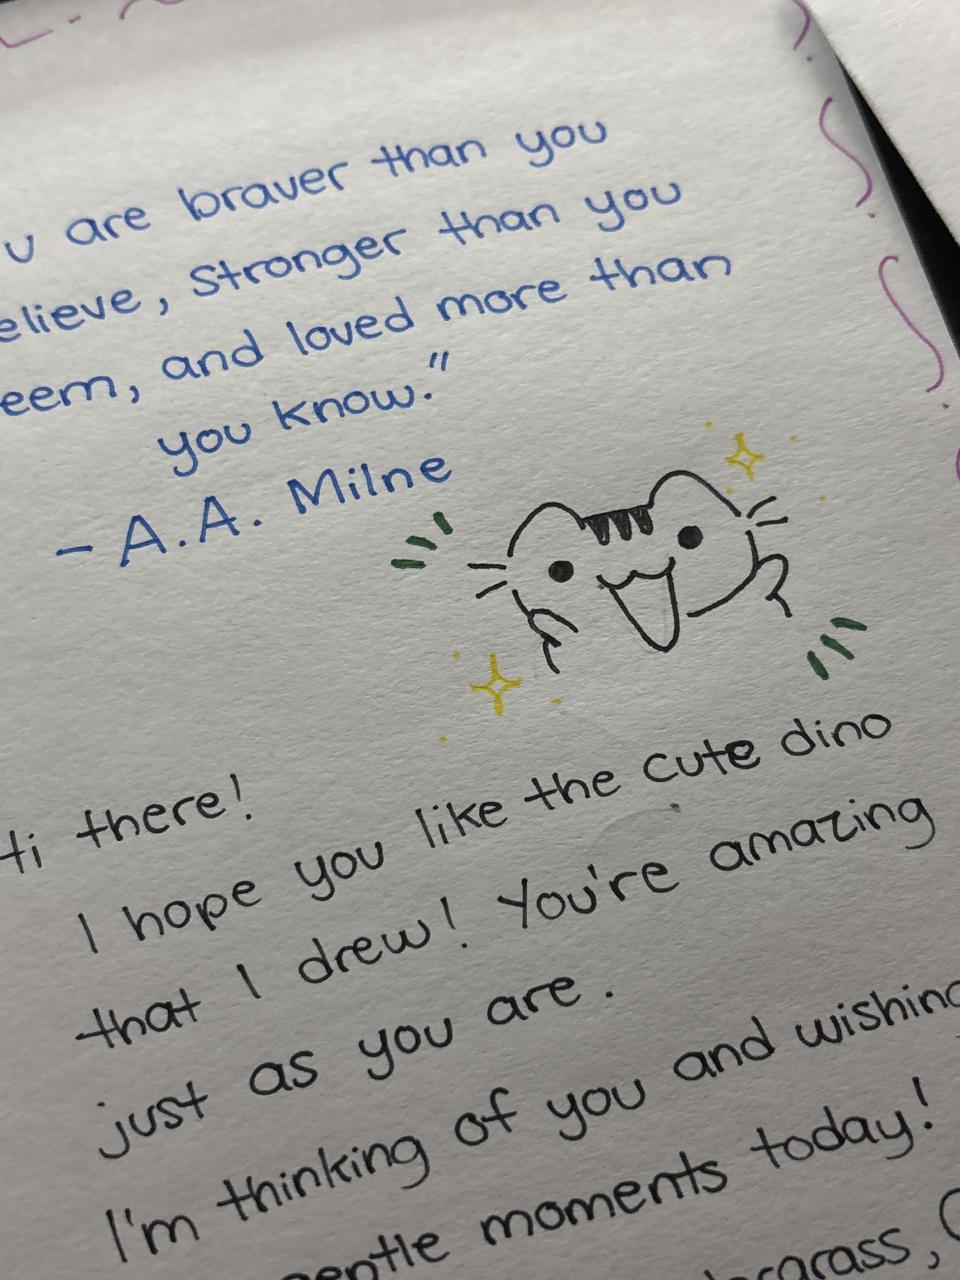 are braver than you
, stronger than you
, and loved more than
you know."
- A.A. Milne
Hi there!
I hope you like the cute dino
that I drew! You're amazing
just as you are.
I'm thinking of you and
moments today!